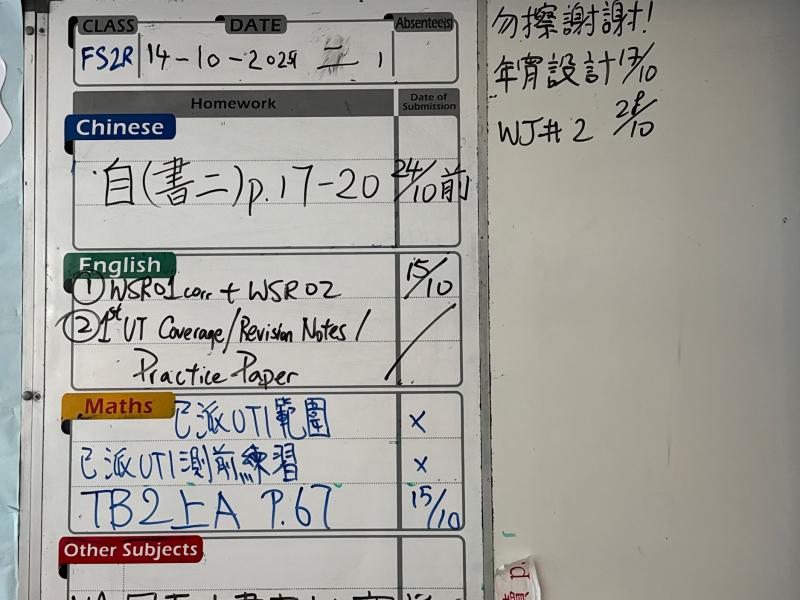 CLASS DATE Absentee(s)
FS2R 14-10-2025 二 1
Homework Date of Submission
Chinese
自(書二)p.17-20 24/10前
English
① WSR01 corr + WSR02 15/10
② 1st UT Coverage/Revision Notes/
Practice Paper
Maths
已派UT1範圍 ×
已派UT1測前練習 ×
TB2上A P.67 15/10
Other Subjects
勿擦謝謝!
年宵設計17/10
WJ#2